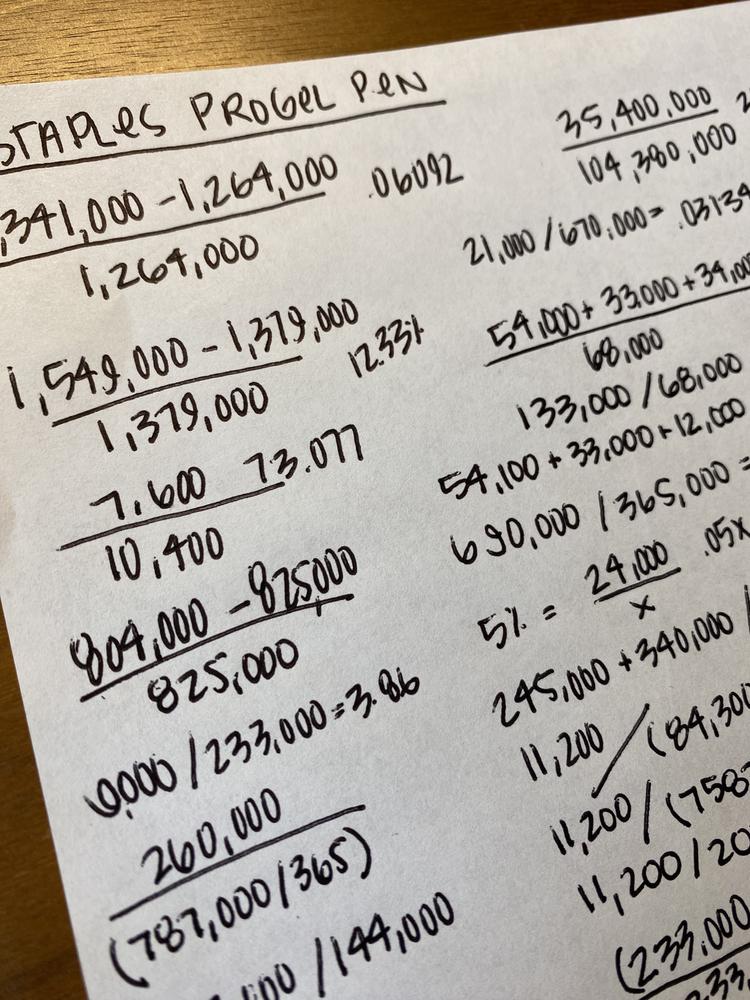 STAPLES PROGEL PEN
,341,000 - 1,264,000 .06092
1,264,000
1,549,000 - 1,379,000 12.33%
1,379,000
7,600 73.077
10,400
804,000 - 825,000
825,000
0,000 / 233,000 = 3.86
260,000
(787,000 / 365)
,000 / 144,000
35,400,000
104,380,000
21,000 / 670,000 = .03134
54,000 + 33,000 + 34,00
68,000
133,000 / 68,000
54,100 + 33,000 + 12,000
690,000 / 365,000 =
5% = 24,000 .05x
x
245,000 + 340,000 /
11,200 / (84,300
11,200 / (758
11,200 / 20
(233,000
233,